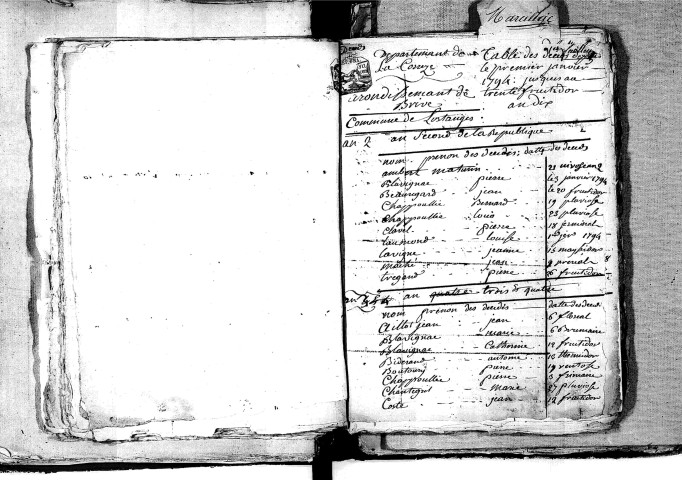 Departement de
La Coreze
arrondissemant de
Brive
Table des deces
le premier janvier
1794 jusques au
trente fruitidor
an dix
Commune de Lostanges
an 2 an second de la Republique
nom prenon des decedes datte des deces
ambert maturin 21 nivose an 2
Blavignac pierre le 3 janvier 1794
Beauregard jean le 20 fruitidor
Chappoullie Bernard 19 pluviose
Chappoullie louis 23 pluviose
Clavel pierre 18 preminal
laumond louise 1794
lavigne jeanne 15
jean
tregend piere 26 fruitidor
an quatre trois & quatre
nom prenon des decedes datte des deces
Aillot jean jean 6 floreal
Blavignac marie 6 brumaire
Blavignac Catherine fruitidor
antoine thermidor
piere 19 ventose
Chappoullie pierre 3 frimaire
Chantegril marie 27 pluviose
Coste jean 12 fruitidor